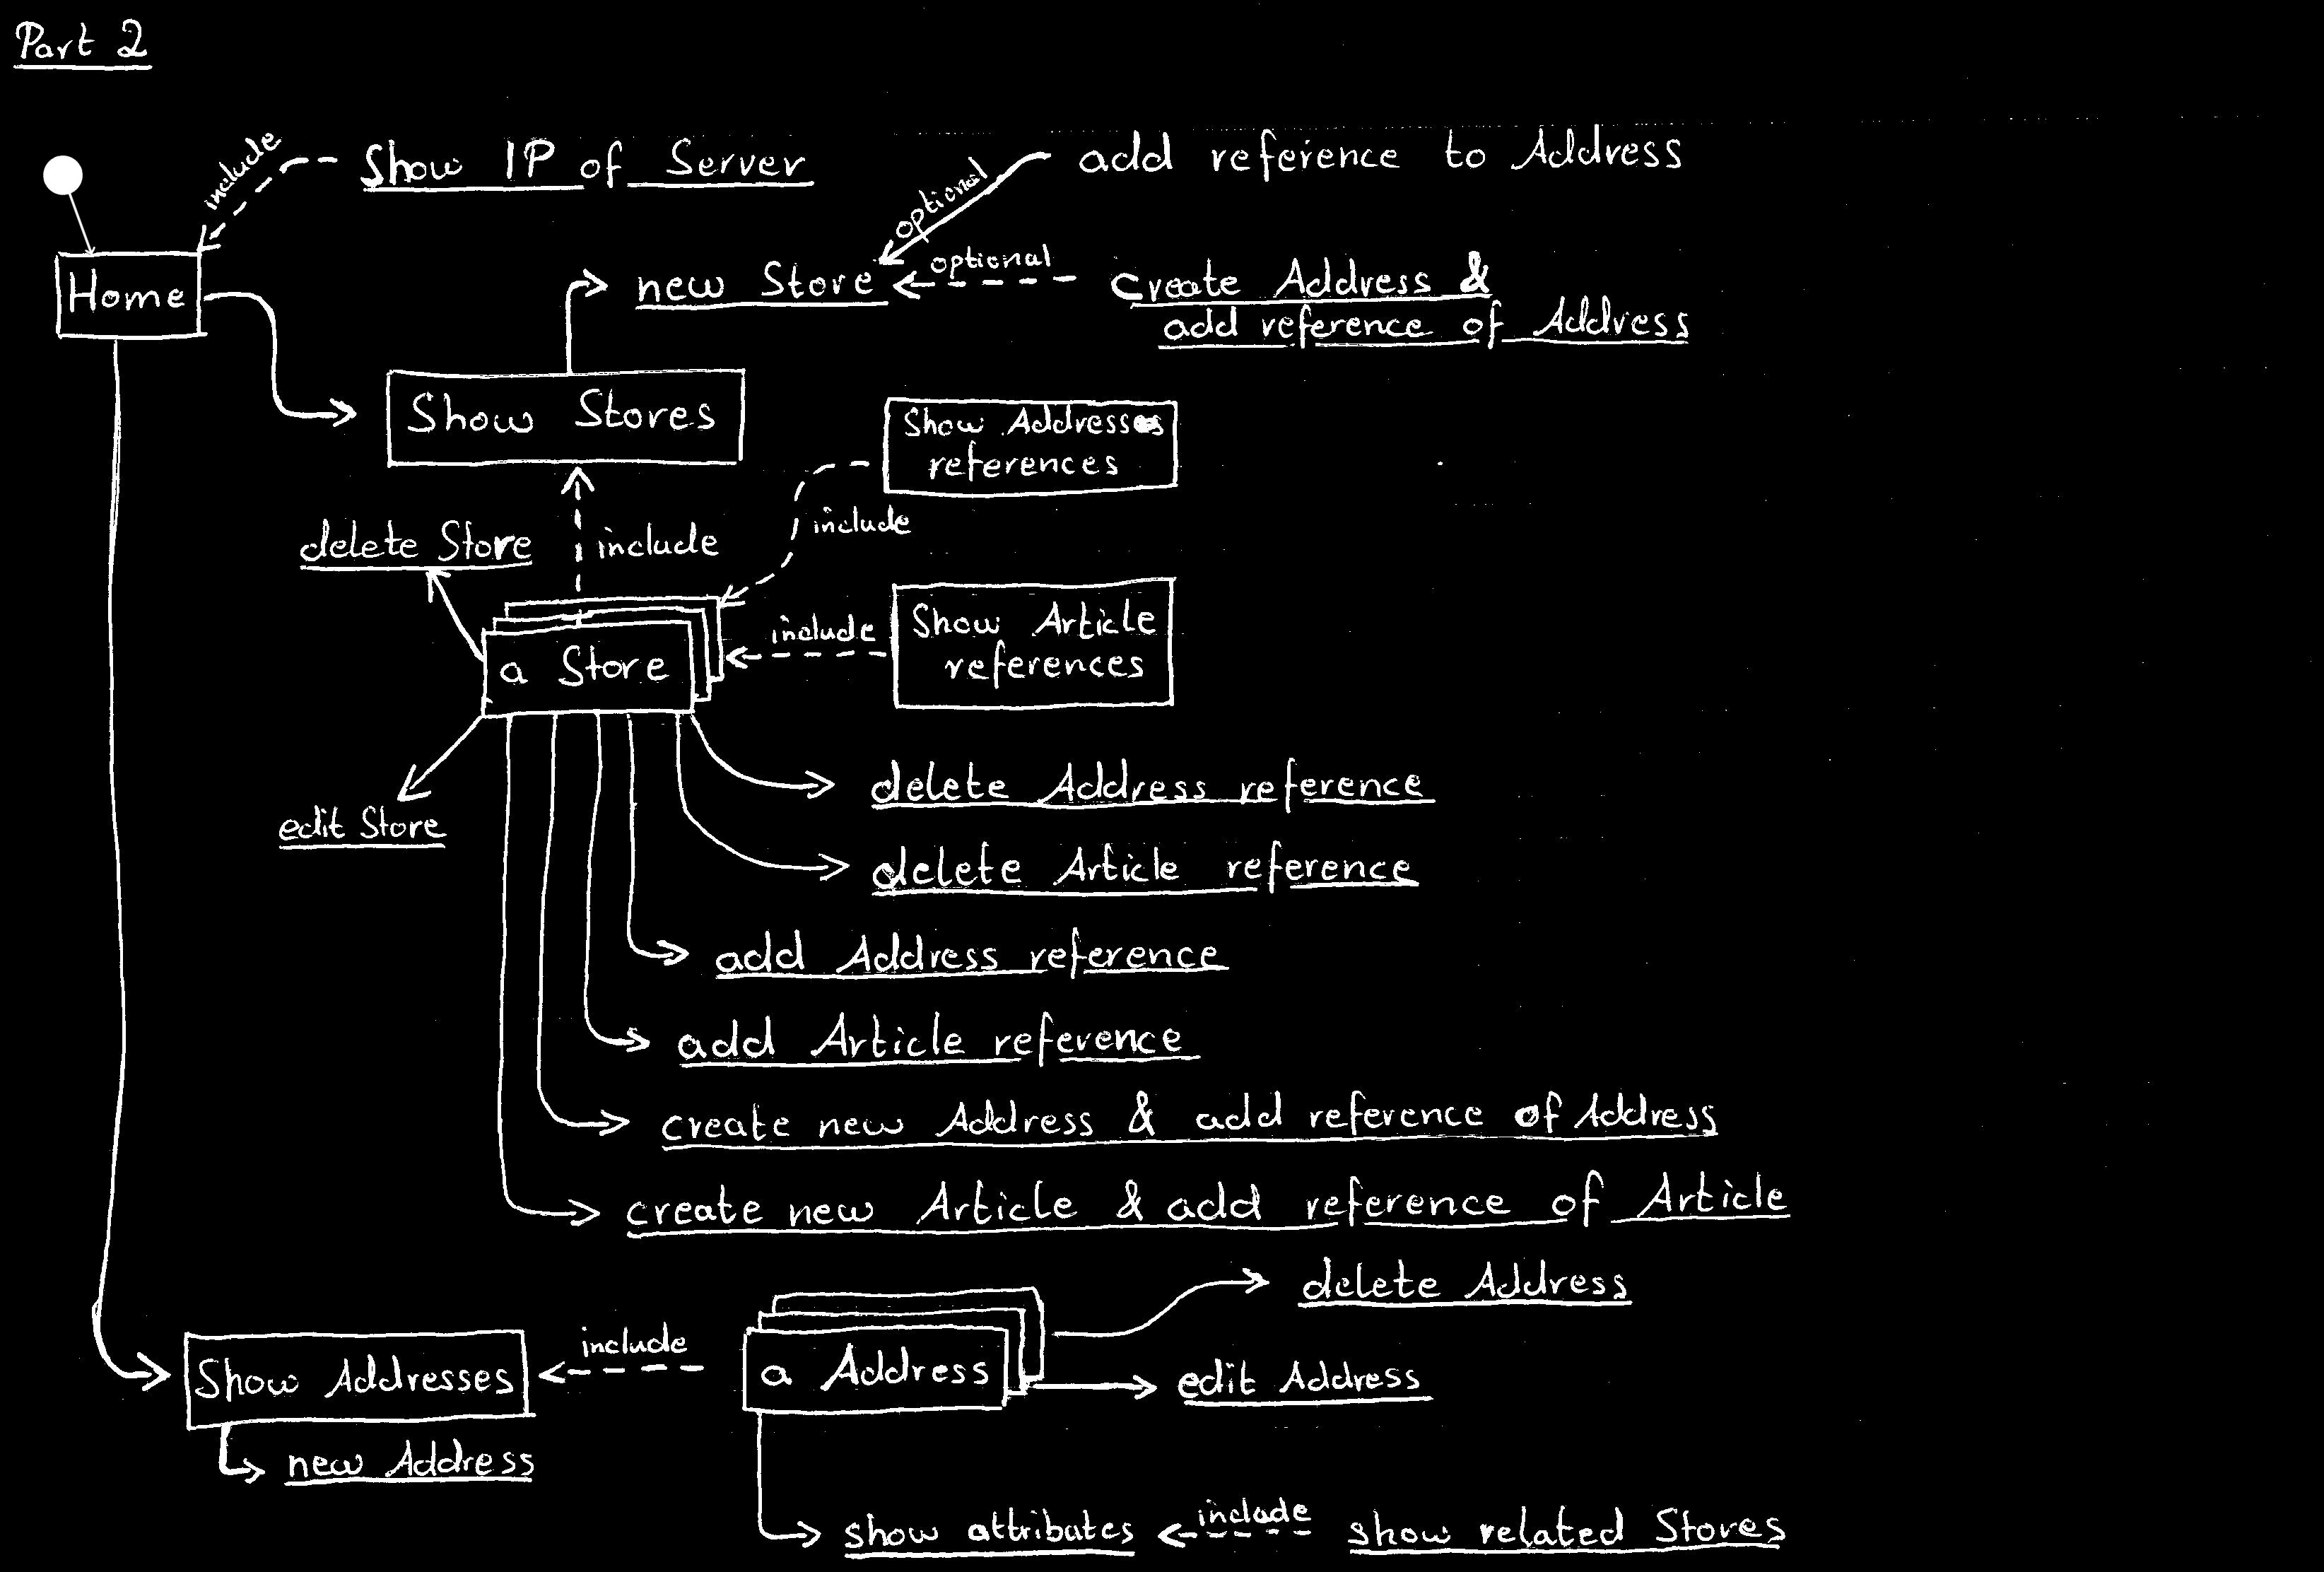 Part 2
include
Show IP of Server
add reference to Address
optional
Home
new Store
optional
create Address &
add reference of Address
Show Stores
Show Addresses
references
include
delete Store
include
Show Article
references
include
a Store
edit Store
delete Address reference
delete Article reference
add Address reference
add Article reference
create new Address & add reference of Address
create new Article & add reference of Article
delete Address
Show Addresses
include
a Address
edit Address
new Address
show attributes
include
show related Stores